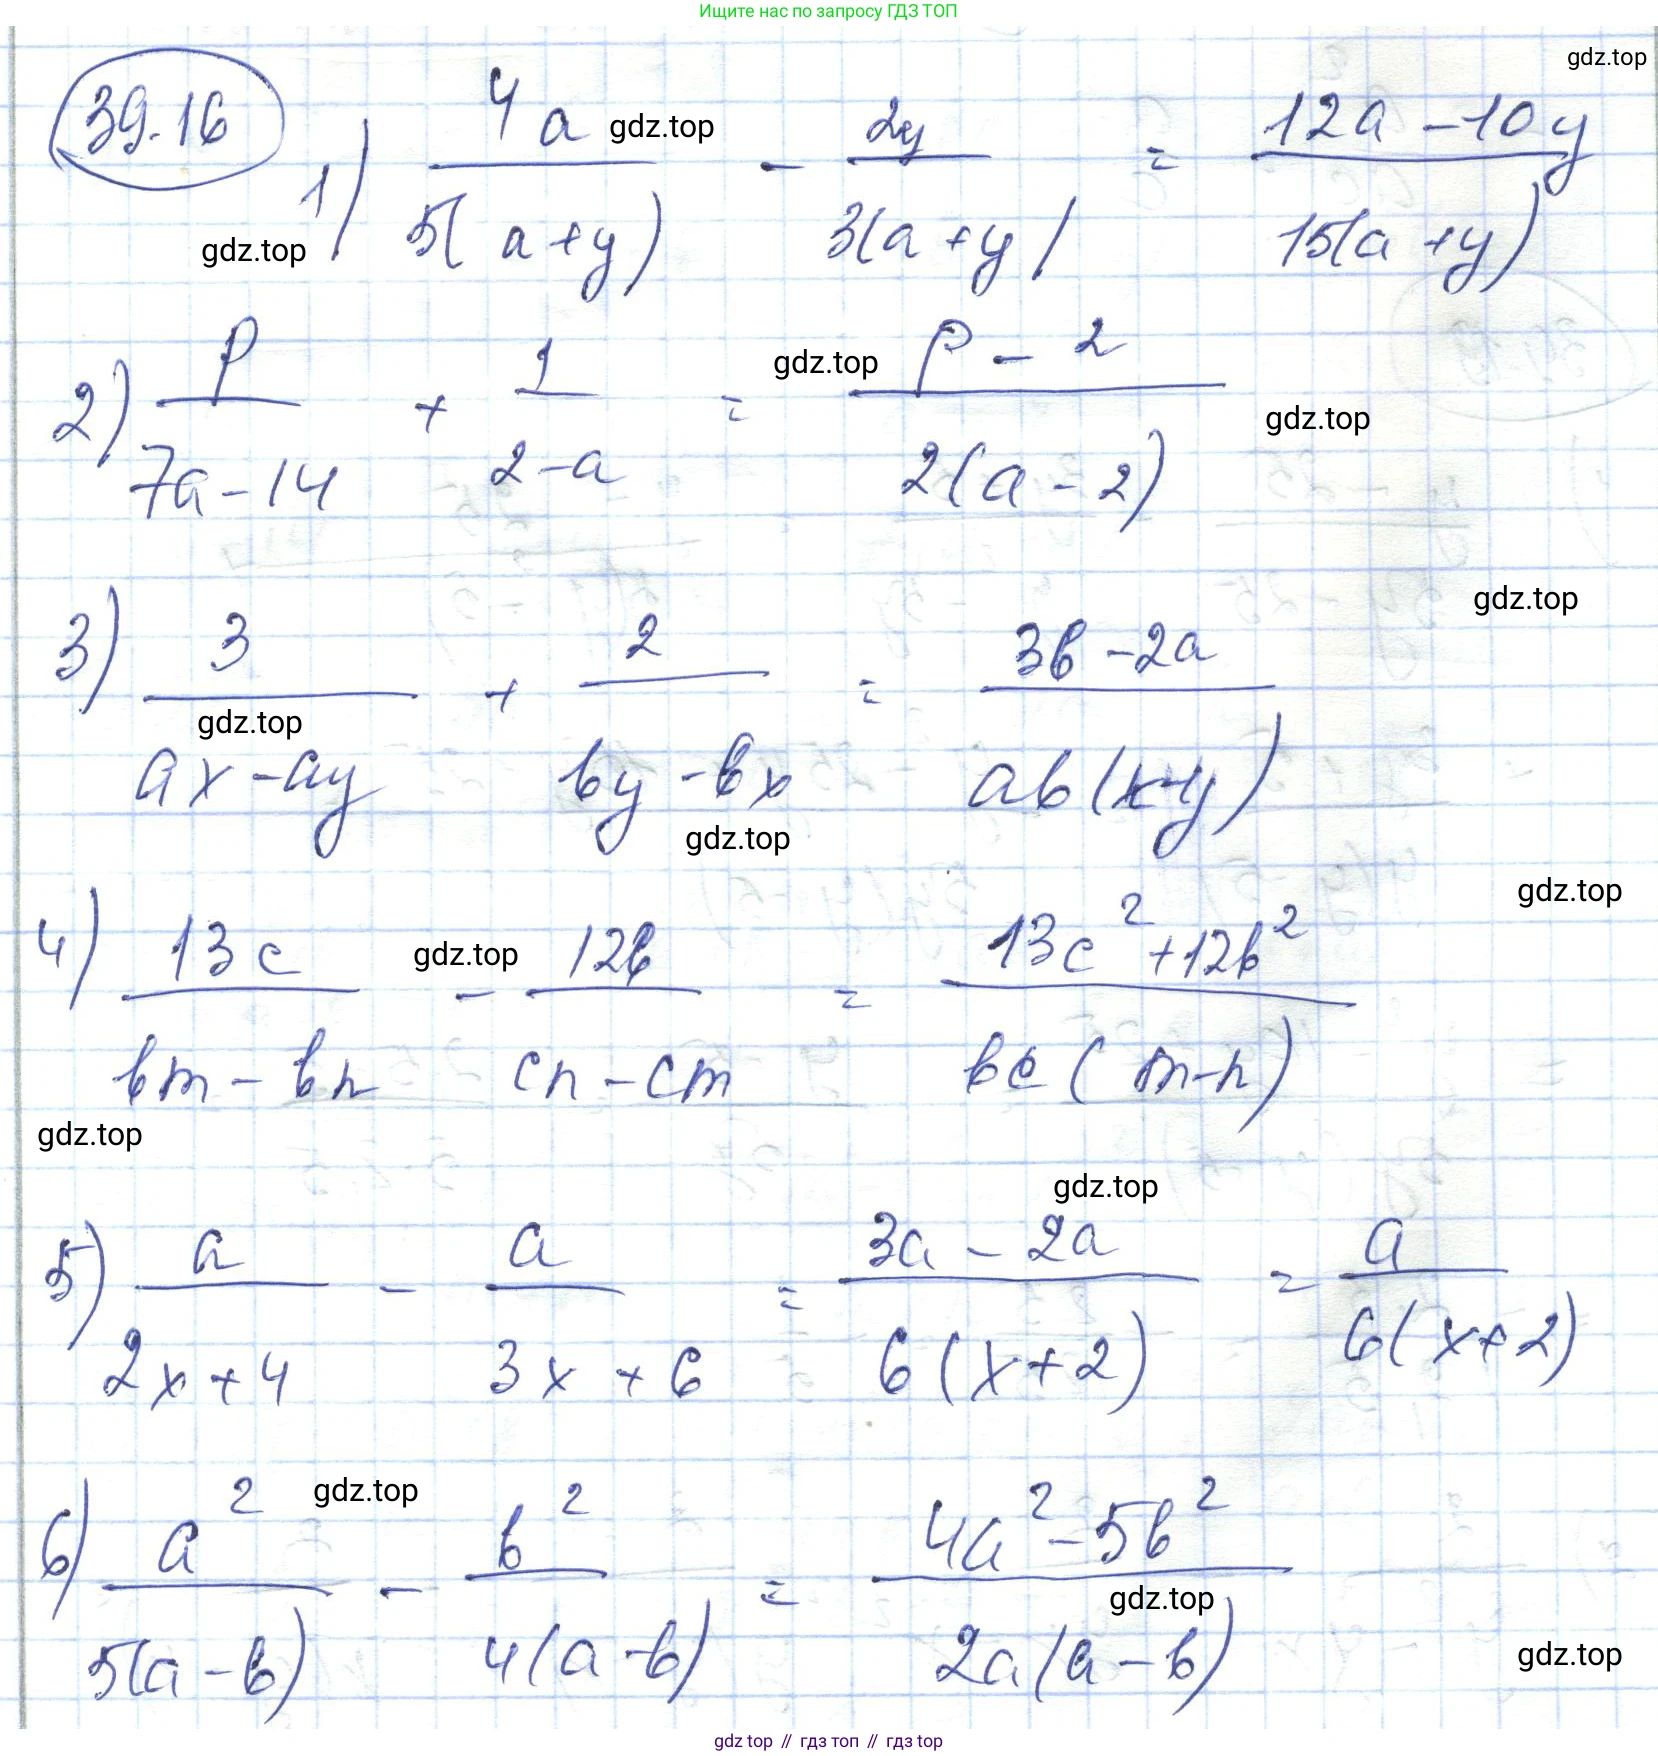 Ищите нас по запросу ГДЗ ТОП
gdz.top
39.16
1) 4a / 5(a+y) - 2y / 3(a+y) = 12a - 10y / 15(a+y)
gdz.top
gdz.top
2) p / 7a - 14 + 1 / 2 - a = p - 2 / 2(a - 2)
gdz.top
gdz.top
gdz.top
3) 3 / ax - ay + 2 / by - bx = 3b - 2a / ab(x-y)
gdz.top
gdz.top
gdz.top
4) 13c / bm - bn - 12b / cn - cm = 13c² + 12b² / bc(m-n)
gdz.top
gdz.top
gdz.top
5) a / 2x + 4 - a / 3x + 6 = 3a - 2a / 6(x+2) = a / 6(x+2)
gdz.top
6) a² / 5(a - b) - b² / 4(a - b) = 4a² - 5b² / 2a(a - b)
gdz.top
gdz.top
gdz top // гдз топ // гдз top